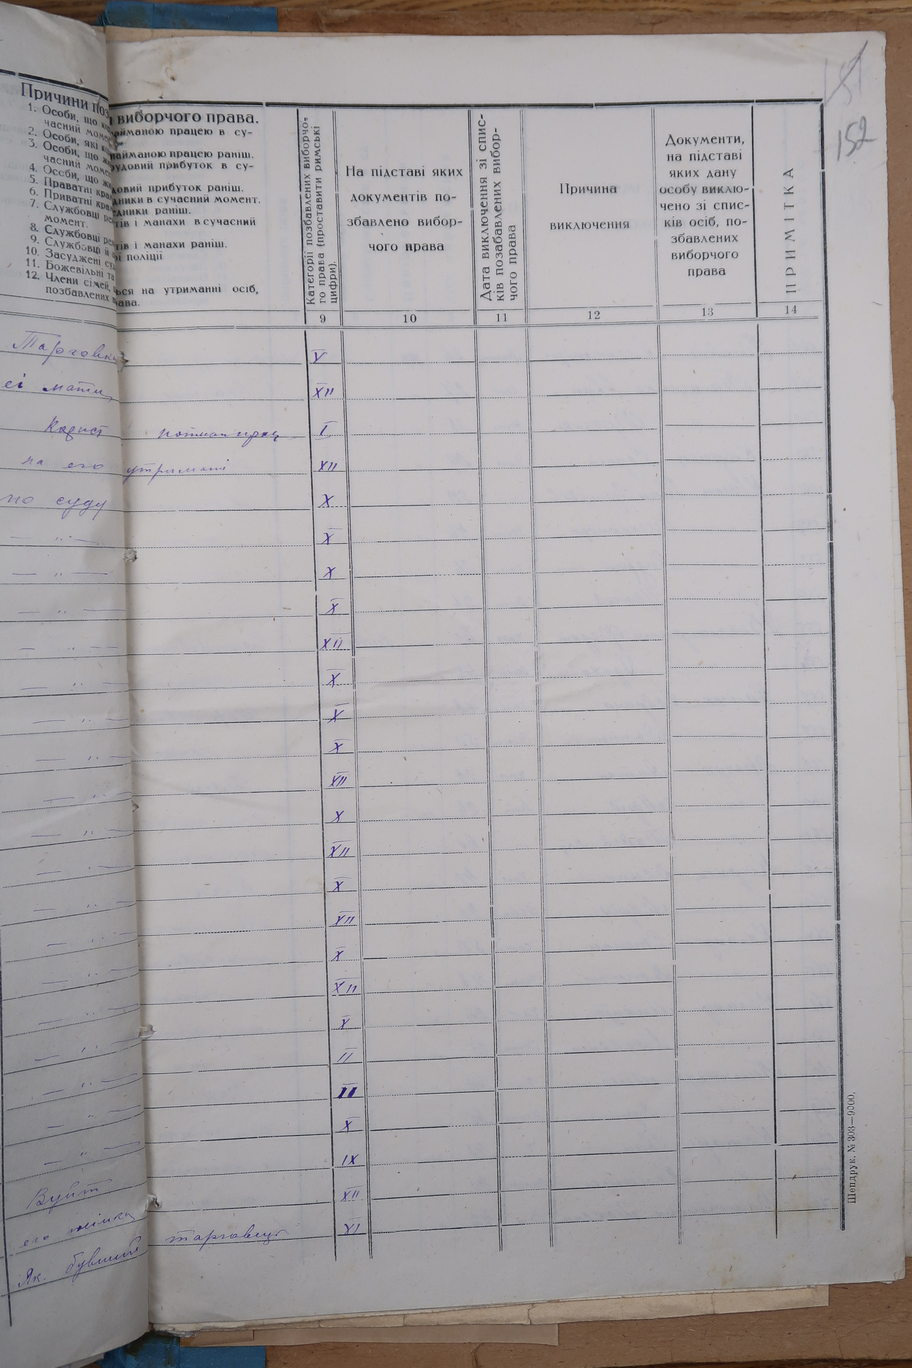 151
152
Причини поз
виборчого права.
1. Особи, що
найманою працею в су-
часний момент
2. Особи, які
найманою працею раніш.
3. Особи, що
трудовий прибуток в су-
часний момент
4. Особи, що
довий прибуток раніш.
5. Праватні
дники в сучасний момент.
6. Приватні
едники раніш.
7. Службовці
тів і манахи в сучасний
момент.
8. Службовці
тів і манахи раніш.
9. Службовці
ої поліції
10. Засуджені
11. Божевільні та
12. Члени сімей,
ься на утриманні осіб,
позбавлених
рава.
Категорії позбавлених виборчо-
го права (проставити римські
цифри).
На підставі яких
документів по-
збавлено вибор-
чого права
Дата виключення зі спис-
ків позабавлених вибор-
чого права
Причина
виключення
Документи,
на підставі
яких дану
особу виклю-
чено зі спис-
ків осіб, по-
збавлених
виборчого
права
ПРИМІТКА
9 10 11 12 13 14
V
еі мати XII
I
на его утримані XII
по суду X
— „ — X
— „ — X
— „ — X
— „ — XII
— „ — X
— „ — X
— „ — X
— „ — XII
— „ — X
— „ — XII
— „ — X
— „ — XII
— „ — X
— „ — XII
— „ — X
— „ — II
— „ — II
— „ — X
Вуйт IX
его жінка XII
Як бувший торговець XI
Шепдрук. № 303—9000.